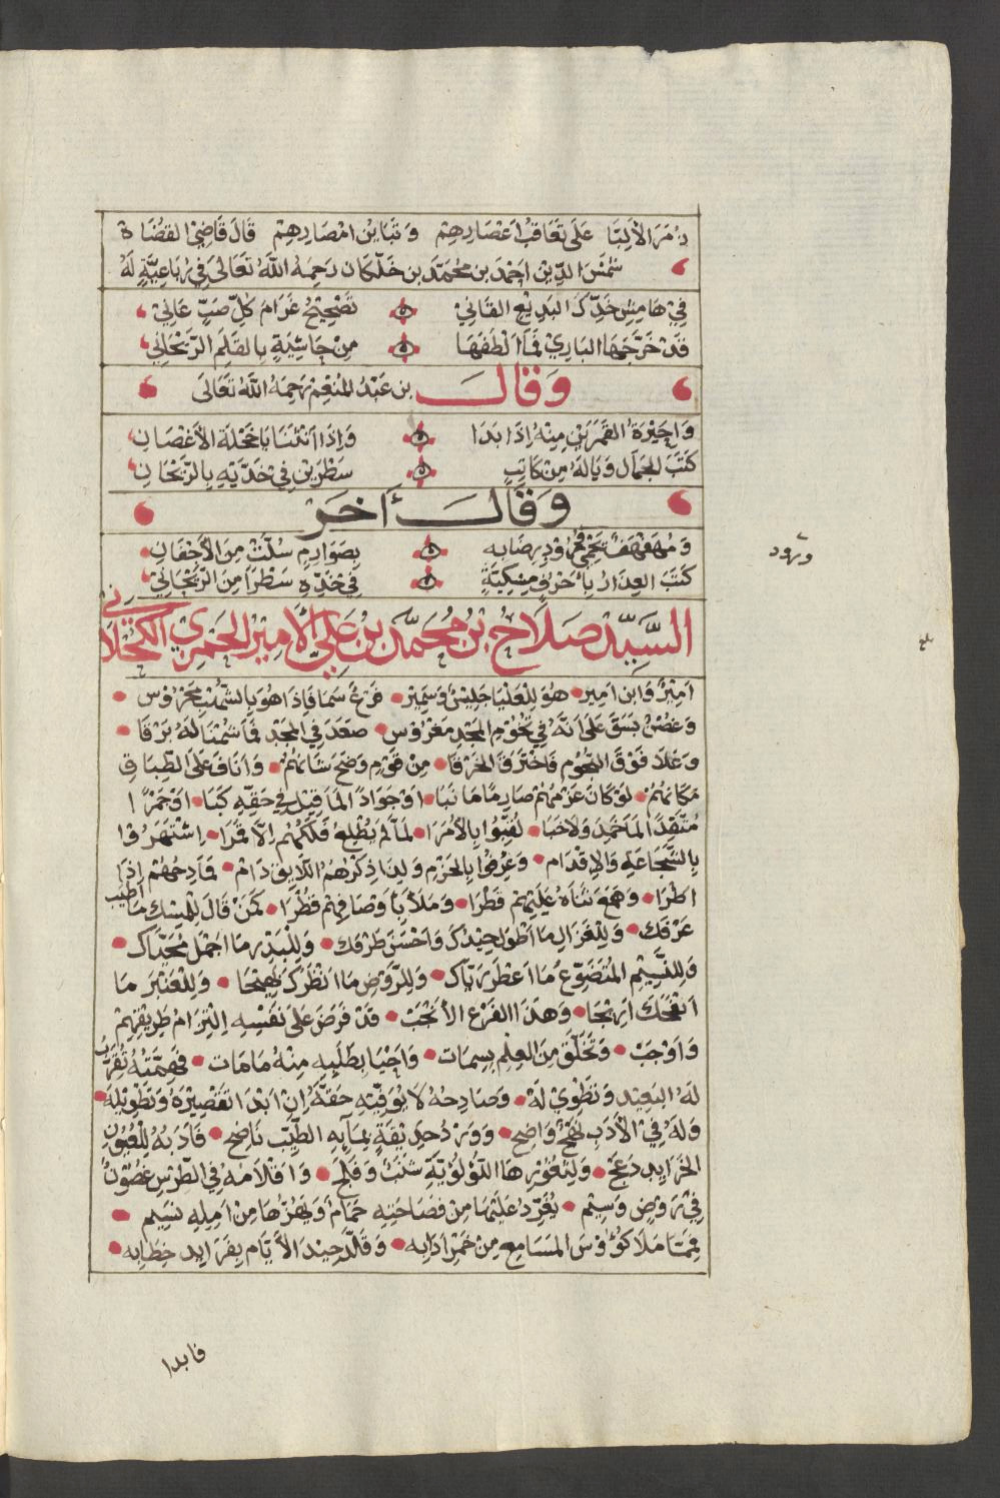 زمر الألبا على تعاقب اعصارهم وتباين امصارهم قال قاضي القضاة
شمس الدين احمد بن محمد بن خلكان رحمه الله تعالى في رباعية له
في هامش خدك البديع القاني تصحيح غرام كل صب عاني
قد خرجها الباري فما الطفها من حاشية بالقلم الريحاني
وقال بن عبد المنعم رحمه الله تعالى
واحيرة القمرين منه اذا بدا واذا انثنا يا خجلة الأغصان
كتب الجمال وياله من كاتب سطرين في خديه بالريحان
وقال أخر
ومهفهف يحمي رضابه بصوارم سلت من الأجفان
كتب العذار بأحرف مسكية في خده سطرا من الريحاني
ورود
السيد صلاح بن محمد بن علي الأمير الحمزي الكحلاني
امير وابن امير هو للعليا جليس وسمير فرع سما فاذا هو بالشهب محروس
وغصن بسق على انه في تخوم المجد مغروس صعد في المجد فما شمنا له برقا
وعلا فوق النجوم فاخترق الخرقا من قوم وضح شانهم واناف على الطباق
مكانهم لو كان عزمهم صارما ما نبا او جوادا لما قيل في حقه كبا او جمرا
متقدا لما خمد ولا خبا لقبوا بالأمرا لما لم يطلع فلكهم الا قمرا اشتهروا
بالشجاعة والإقدام وعرفوا بالحزم ولذا ذكرهم اللايق دام فمادحهم اذا
اطرا وهمع ثناه عليهم قطرا وملأ بأوصافهم قطرا كمن قال للمسك ما اطيب
عرفك وللغزال ما اطول جيدك واحسن طرفك وللبدر ما اجمل محياك
وللنسيم المتضوع ما اعطر رياك وللروض ما انظرك بهيجا وللعنبر ما
انفحك اريجا وهذا الفرع الأنجب قد فرض على نفسه التزام طريقهم
واوجب وتخلق من العلم بسمات واحيا بطلبه منه ما مات فهمته تقرب
له البعيد وتطوي له ومادحه لا يوفيه حقه ان ابدا تقصيره وتطويله
وله في الأدب نهج واضح وورد حديقة بمآيه الطيب ناضح فادبه للعيون
الخرايد دعج ولثغورها اللؤلؤية شنب وفلج واقلامه في الطرس غصون
في روض وسيم يغرد عليها من فصاحته حمام ويهزها من امله نسيم
فمتا ملا كؤوس المسامع من خمر ادابه وقلد جيد الأيام بفرايد خطابه
فابدا